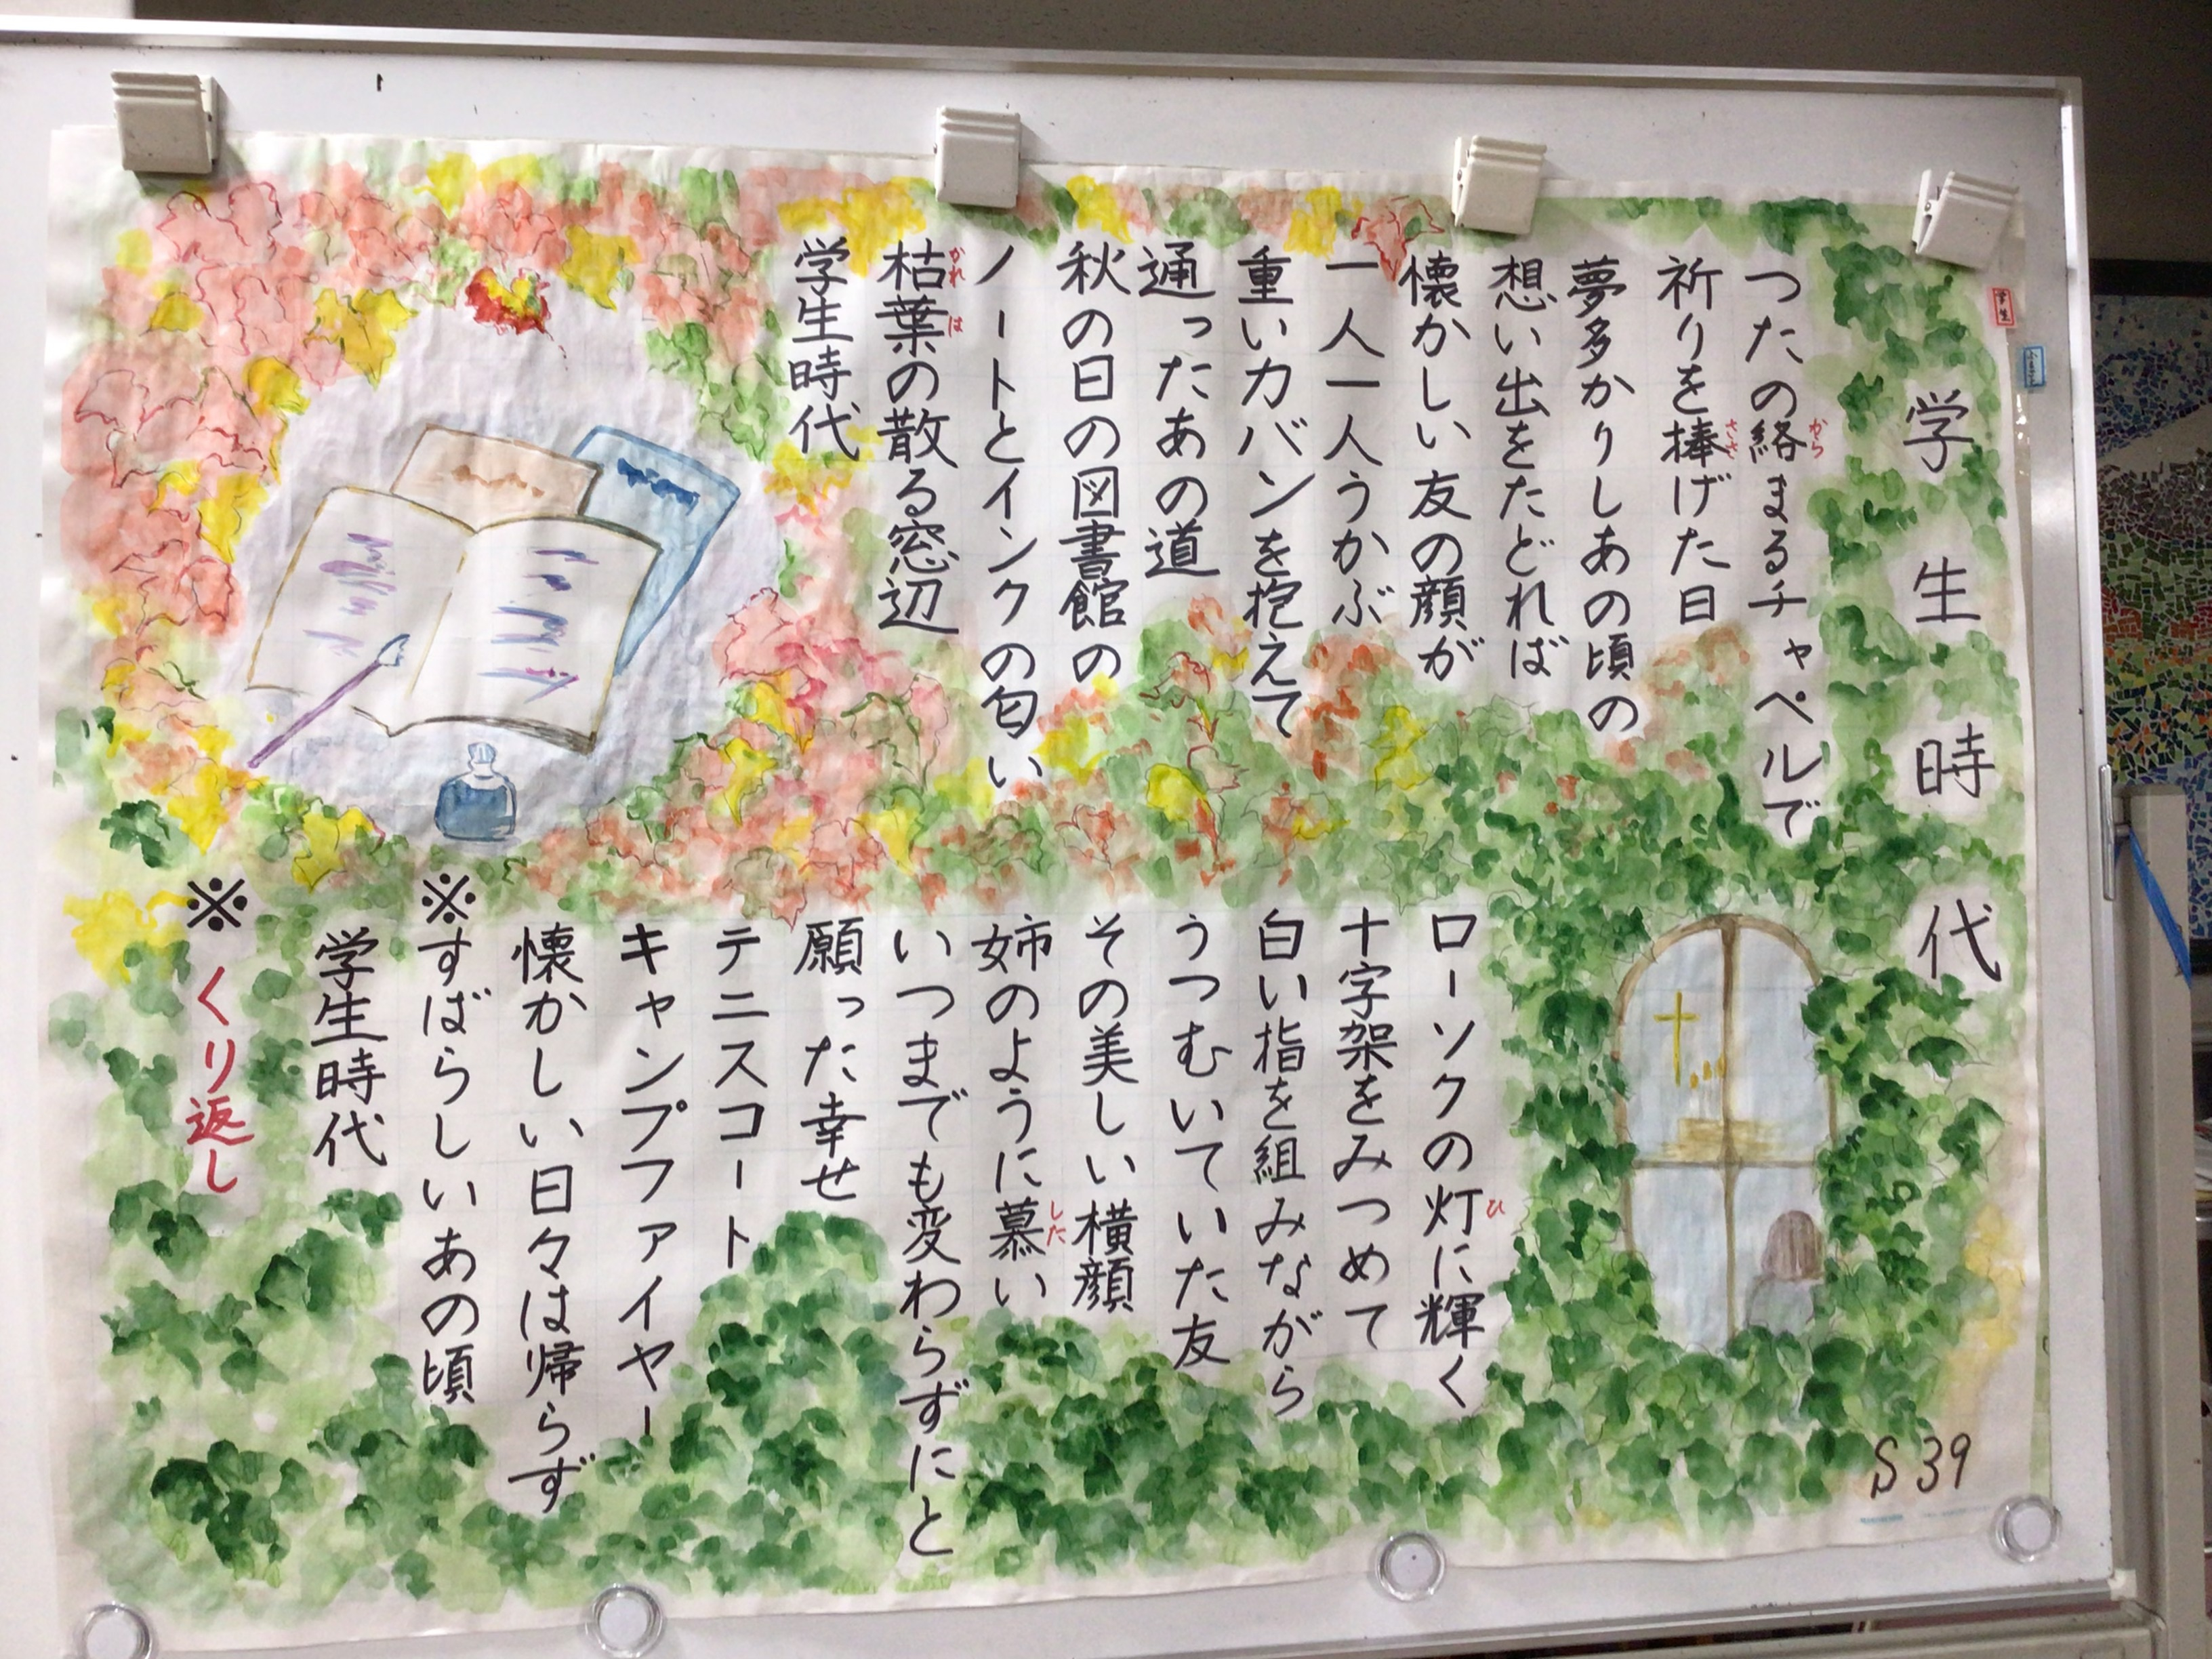 学生時代
つたの絡まるチャペルで
から
祈りを捧げた日
ささ
夢多かりしあの頃の
想い出をたどれば
懐かしい友の顔が
一人一人うかぶ
重いカバンを抱えて
通ったあの道
秋の日の図書館の
ノートとインクの匂い
枯葉の散る窓辺
かれは
学生時代
ローソクの灯に輝く
ひ
十字架をみつめて
白い指を組みながら
うつむいていた友
その美しい横顔
姉のように慕い
した
いつまでも変わらずにと
願った幸せ
テニスコート
キャンプファイヤー
懐かしい日々は帰らず
※すばらしいあの頃
学生時代
※くり返し
S39